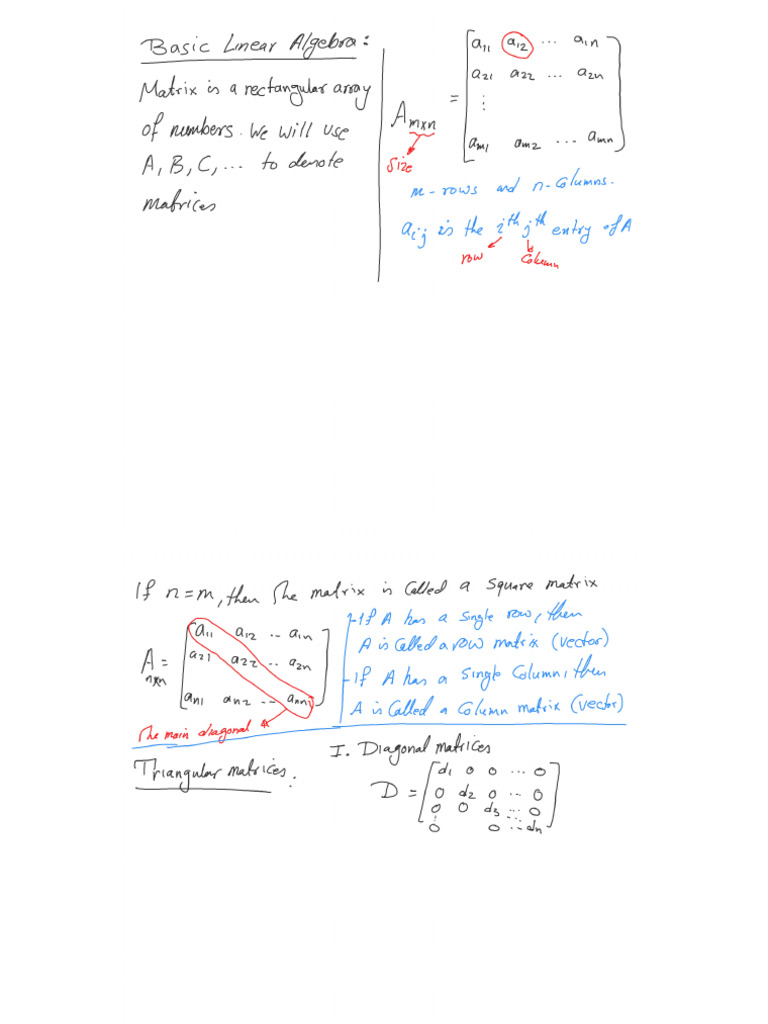 Basic Linear Algebra:
Matrix is a rectangular array
of numbers. We will use
A, B, C, ... to denote
matrices
a11 a12 ... a1n
a21 a22 ... a2n
⋮
Am×n =
am1 am2 ... amn
size
m-rows and n-columns.
aij is the ith jth entry of A
row column
If n=m, then the matrix is called a square matrix
a11 a12 ... a1n
a21 a22 ... a2n
A n×n =
an1 an2 ... ann
The main diagonal
-If A has a single row, then
A is called a row matrix (vector)
-If A has a single column, then
A is called a column matrix (vector)
Triangular matrices:
I. Diagonal matrices
D =
d1 0 0 ... 0
0 d2 0 ... 0
0 0 d3 ... 0
⋮
0 0 ... dn